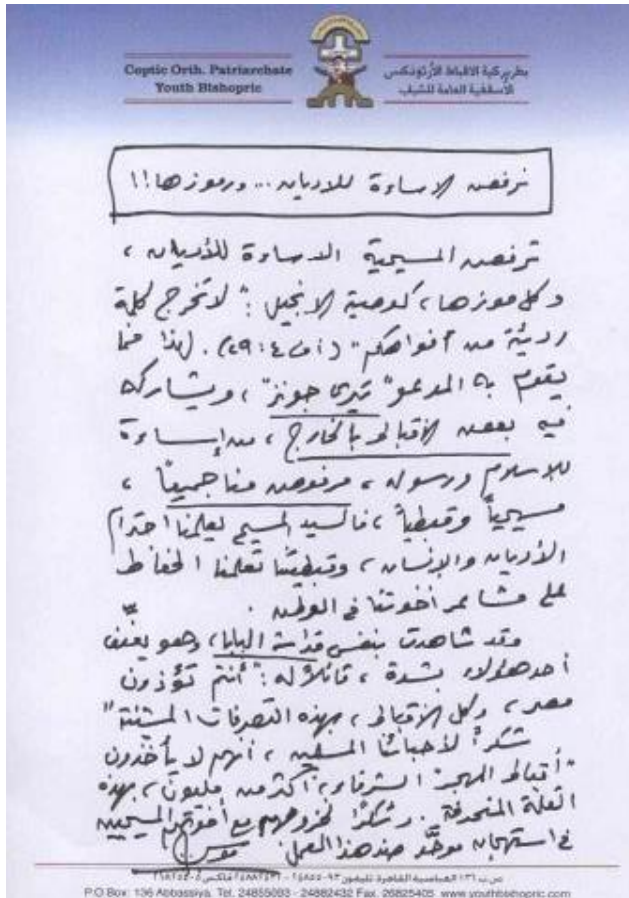 Coptic Orth. Patriarchate
Youth Bishopric
بطريركية الاقباط الأرثوذكس
الأسقفية العامة للشباب
نرفض الإساءة للأديان ... ورموزها!!
ترفض المسيحية الإساءة للأديان ،
وكل رموزها، كوصية الإنجيل : "لا تخرج كلمة
رديئة من أفواهكم" (أف ٤ : ٢٩). لهذا فما
يقوم به المدعو "تيري جونز" ، ويشاركه
فيه بعض الأقباط بالخارج ، من إساءة
للإسلام ورسوله ، مرفوض منا جميعاً ،
مسيحياً وقبطياً ، فالسيد المسيح يعلمنا احترام
الأديان والإنسان ، وقبطيتنا تعلمنا الحفاظ
على مشاعر أخوتنا في الوطن .
وقد شاهدت بنفسي قداسة البابا، وهو يعنّف
أحد هؤلاء بشدة ، قائلاً له : "أنتم تؤذون
مصر ، وكل الأقباط ، بهذه التصرفات المشينة"
شكراً لأحبائنا المسلمين ، أنهم لا يأخذون
"أقباط المهجر" الشرفاء ، أكثر من مليون ، بهذه
القلة المنحرفة . وشكراً لخروجهم مع أخوتهم المسيحيين
في استهجان موحّد ضد هذا العمل .
ص.ب ١٣٦ العباسية القاهرة تليفون
P.O Box: 136 Abbassiya, Tel. 24855093 - 24882432 Fax. 26825405 www.youthbishopric.com